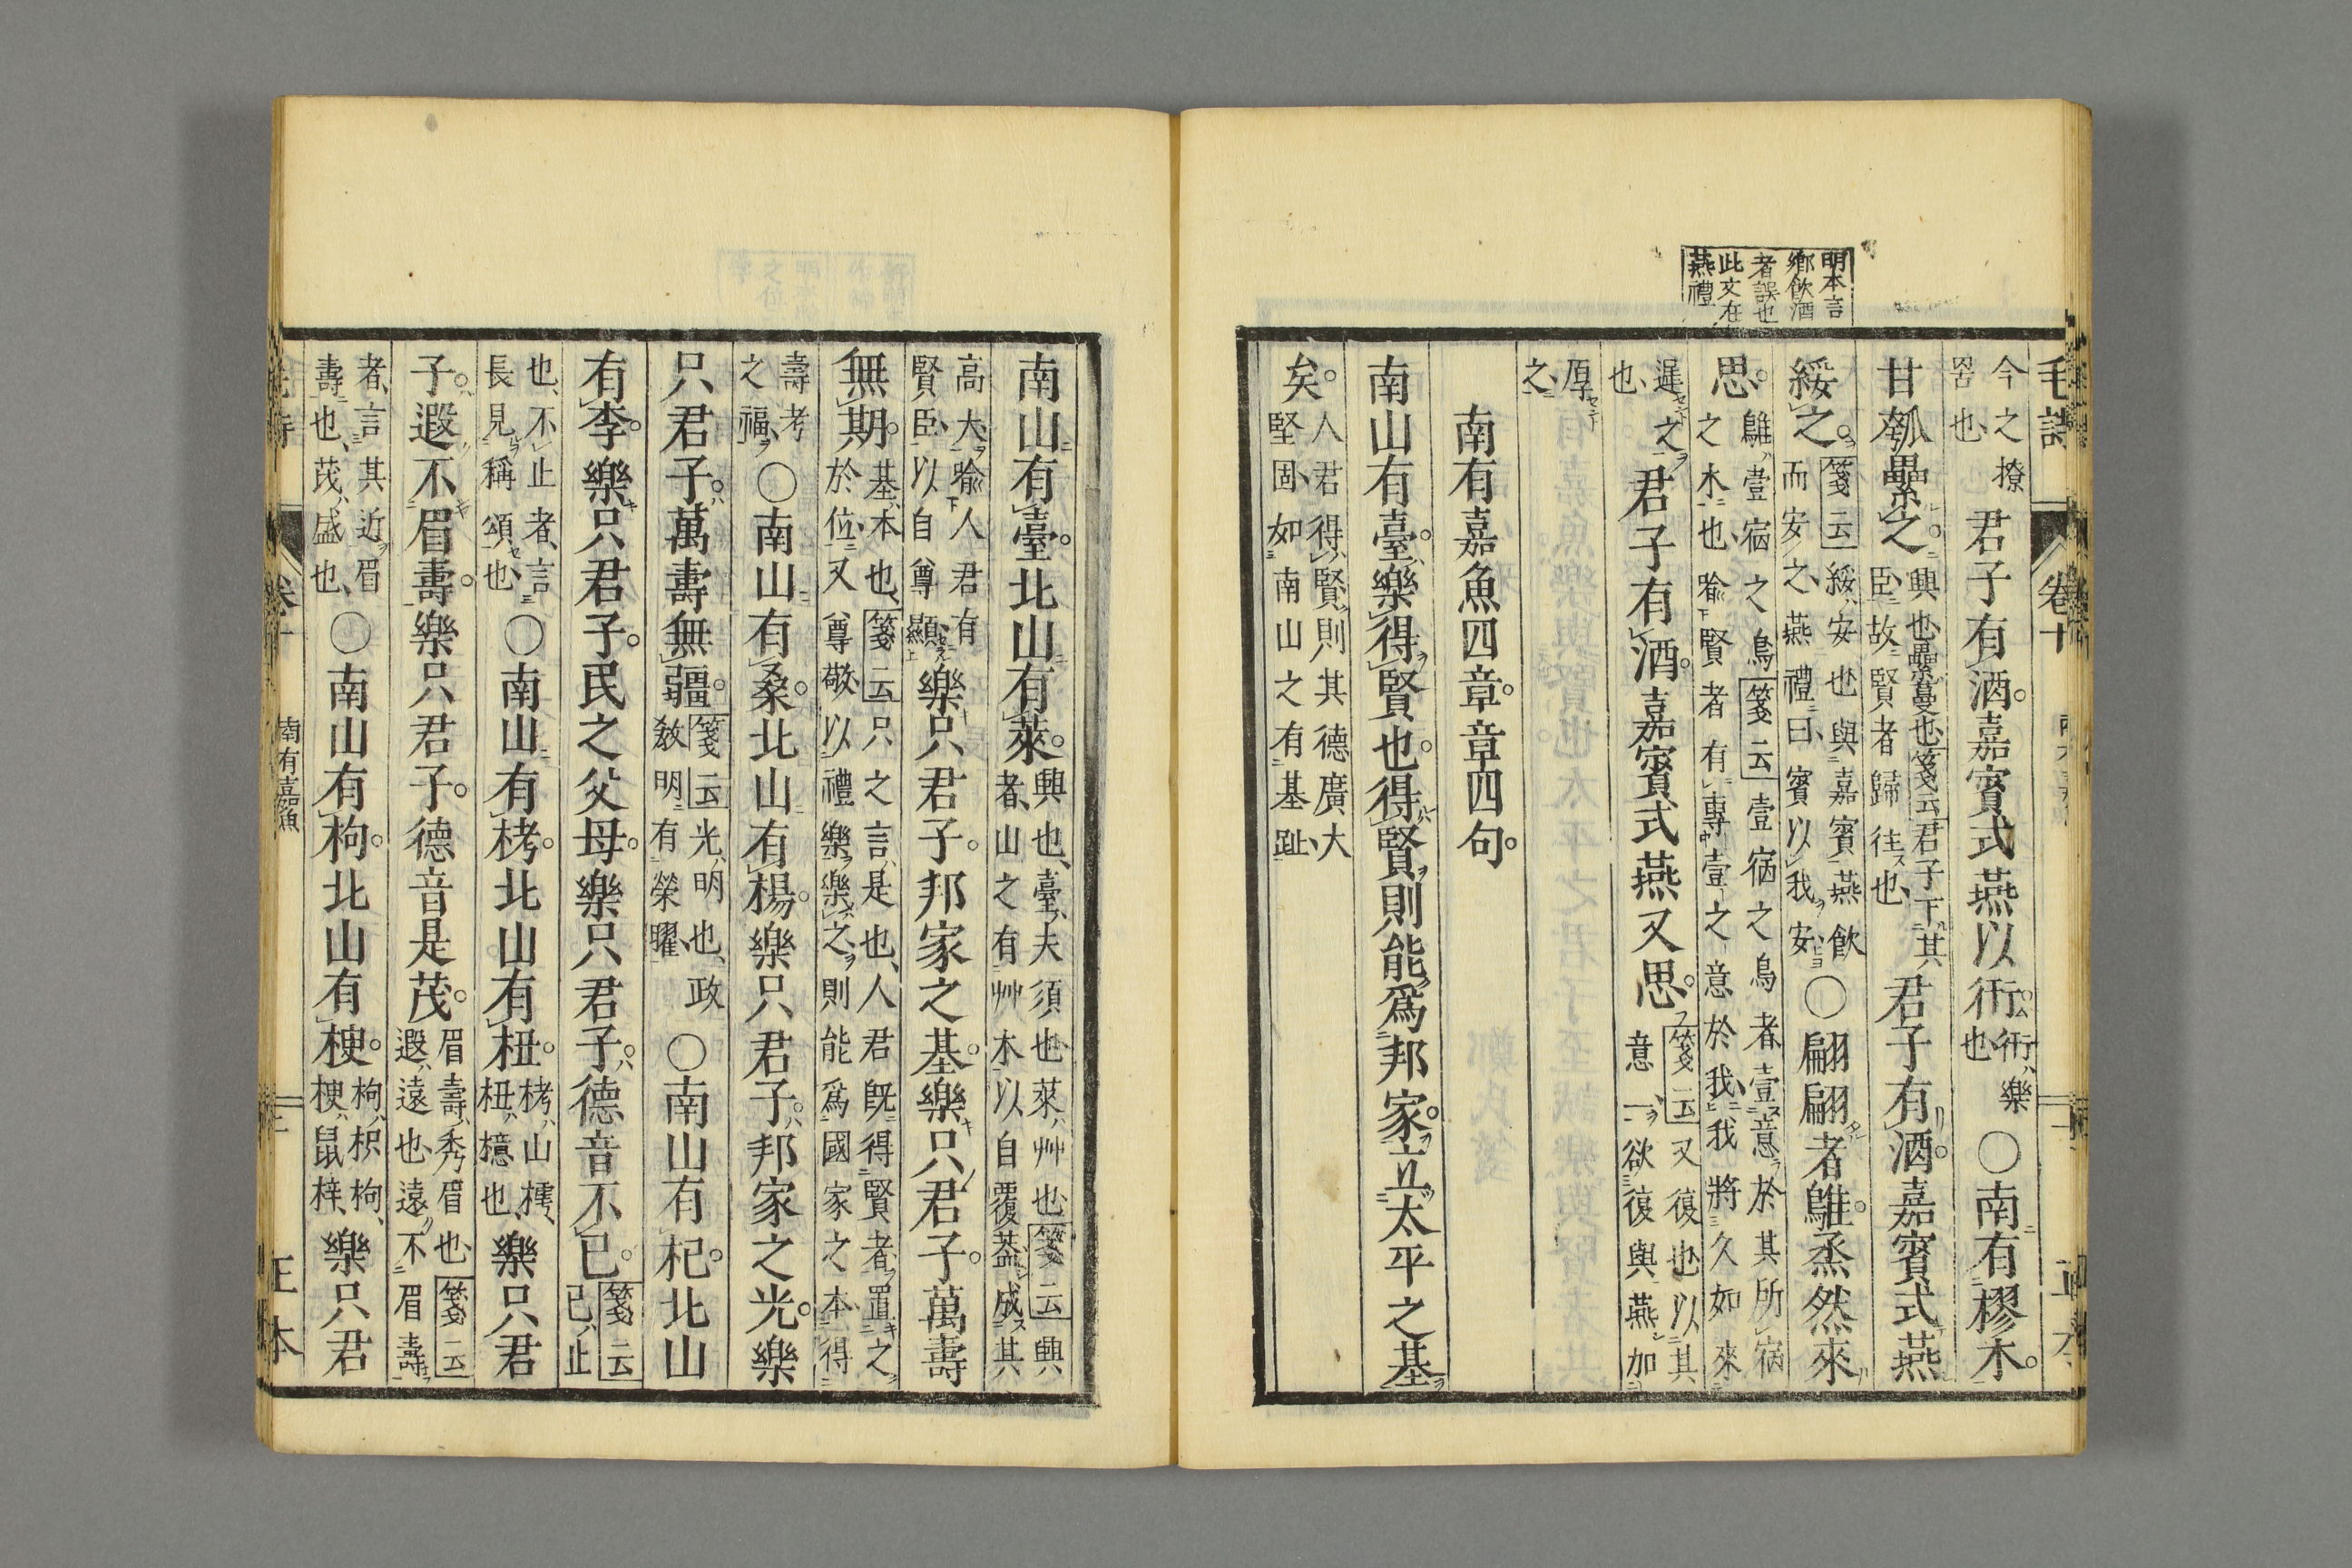 明本言
鄉飲酒
者誤也
此文在
燕禮
毛詩 卷十
今之撩
罟也 君子有酒嘉賓式燕以衎衎樂也○南有樛木
甘瓠纍之興也纍蔓也箋云君子下其臣故賢者歸往也君子有酒嘉賓式燕
綏之箋云綏安也與嘉賓燕飲而安之燕禮曰賓以我安○翩翩者鵻烝然來
思鵻壹宿之鳥箋云壹宿之鳥者壹意於其所宿之木也喻賢者有專壹之意於我我將久如來
遲之也君子有酒嘉賓式燕又思箋云又復也以其意一欲復與燕加
厚之
南有嘉魚四章章四句
南山有臺樂得賢也得賢則能爲邦家立太平之基
矣人君得賢則其德廣大堅固如南山之有基趾
南山有臺北山有萊興也臺夫須也萊艸也箋云興者山之有艸木以自覆蓋成其
高大喻人君有賢臣以自尊顯樂只君子邦家之基樂只君子萬壽
無期基本也箋云只之言是也人君既得賢者置之於位又尊敬以禮樂樂之則能爲國家之本得
壽考之福○南山有桑北山有楊樂只君子邦家之光樂
只君子萬壽無疆箋云光明也政敎明有榮曜○南山有杞北山
有李樂只君子民之父母樂只君子德音不已箋云已止
也不止者言長見稱頌也○南山有栲北山有杻栲山樗杻檍也樂只君
子遐不眉壽樂只君子德音是茂眉壽秀眉也箋云遐遠也遠不眉壽
者言其近眉壽也茂盛也○南山有枸北山有楰枸枳枸楰鼠梓樂只君
南有嘉魚
正本